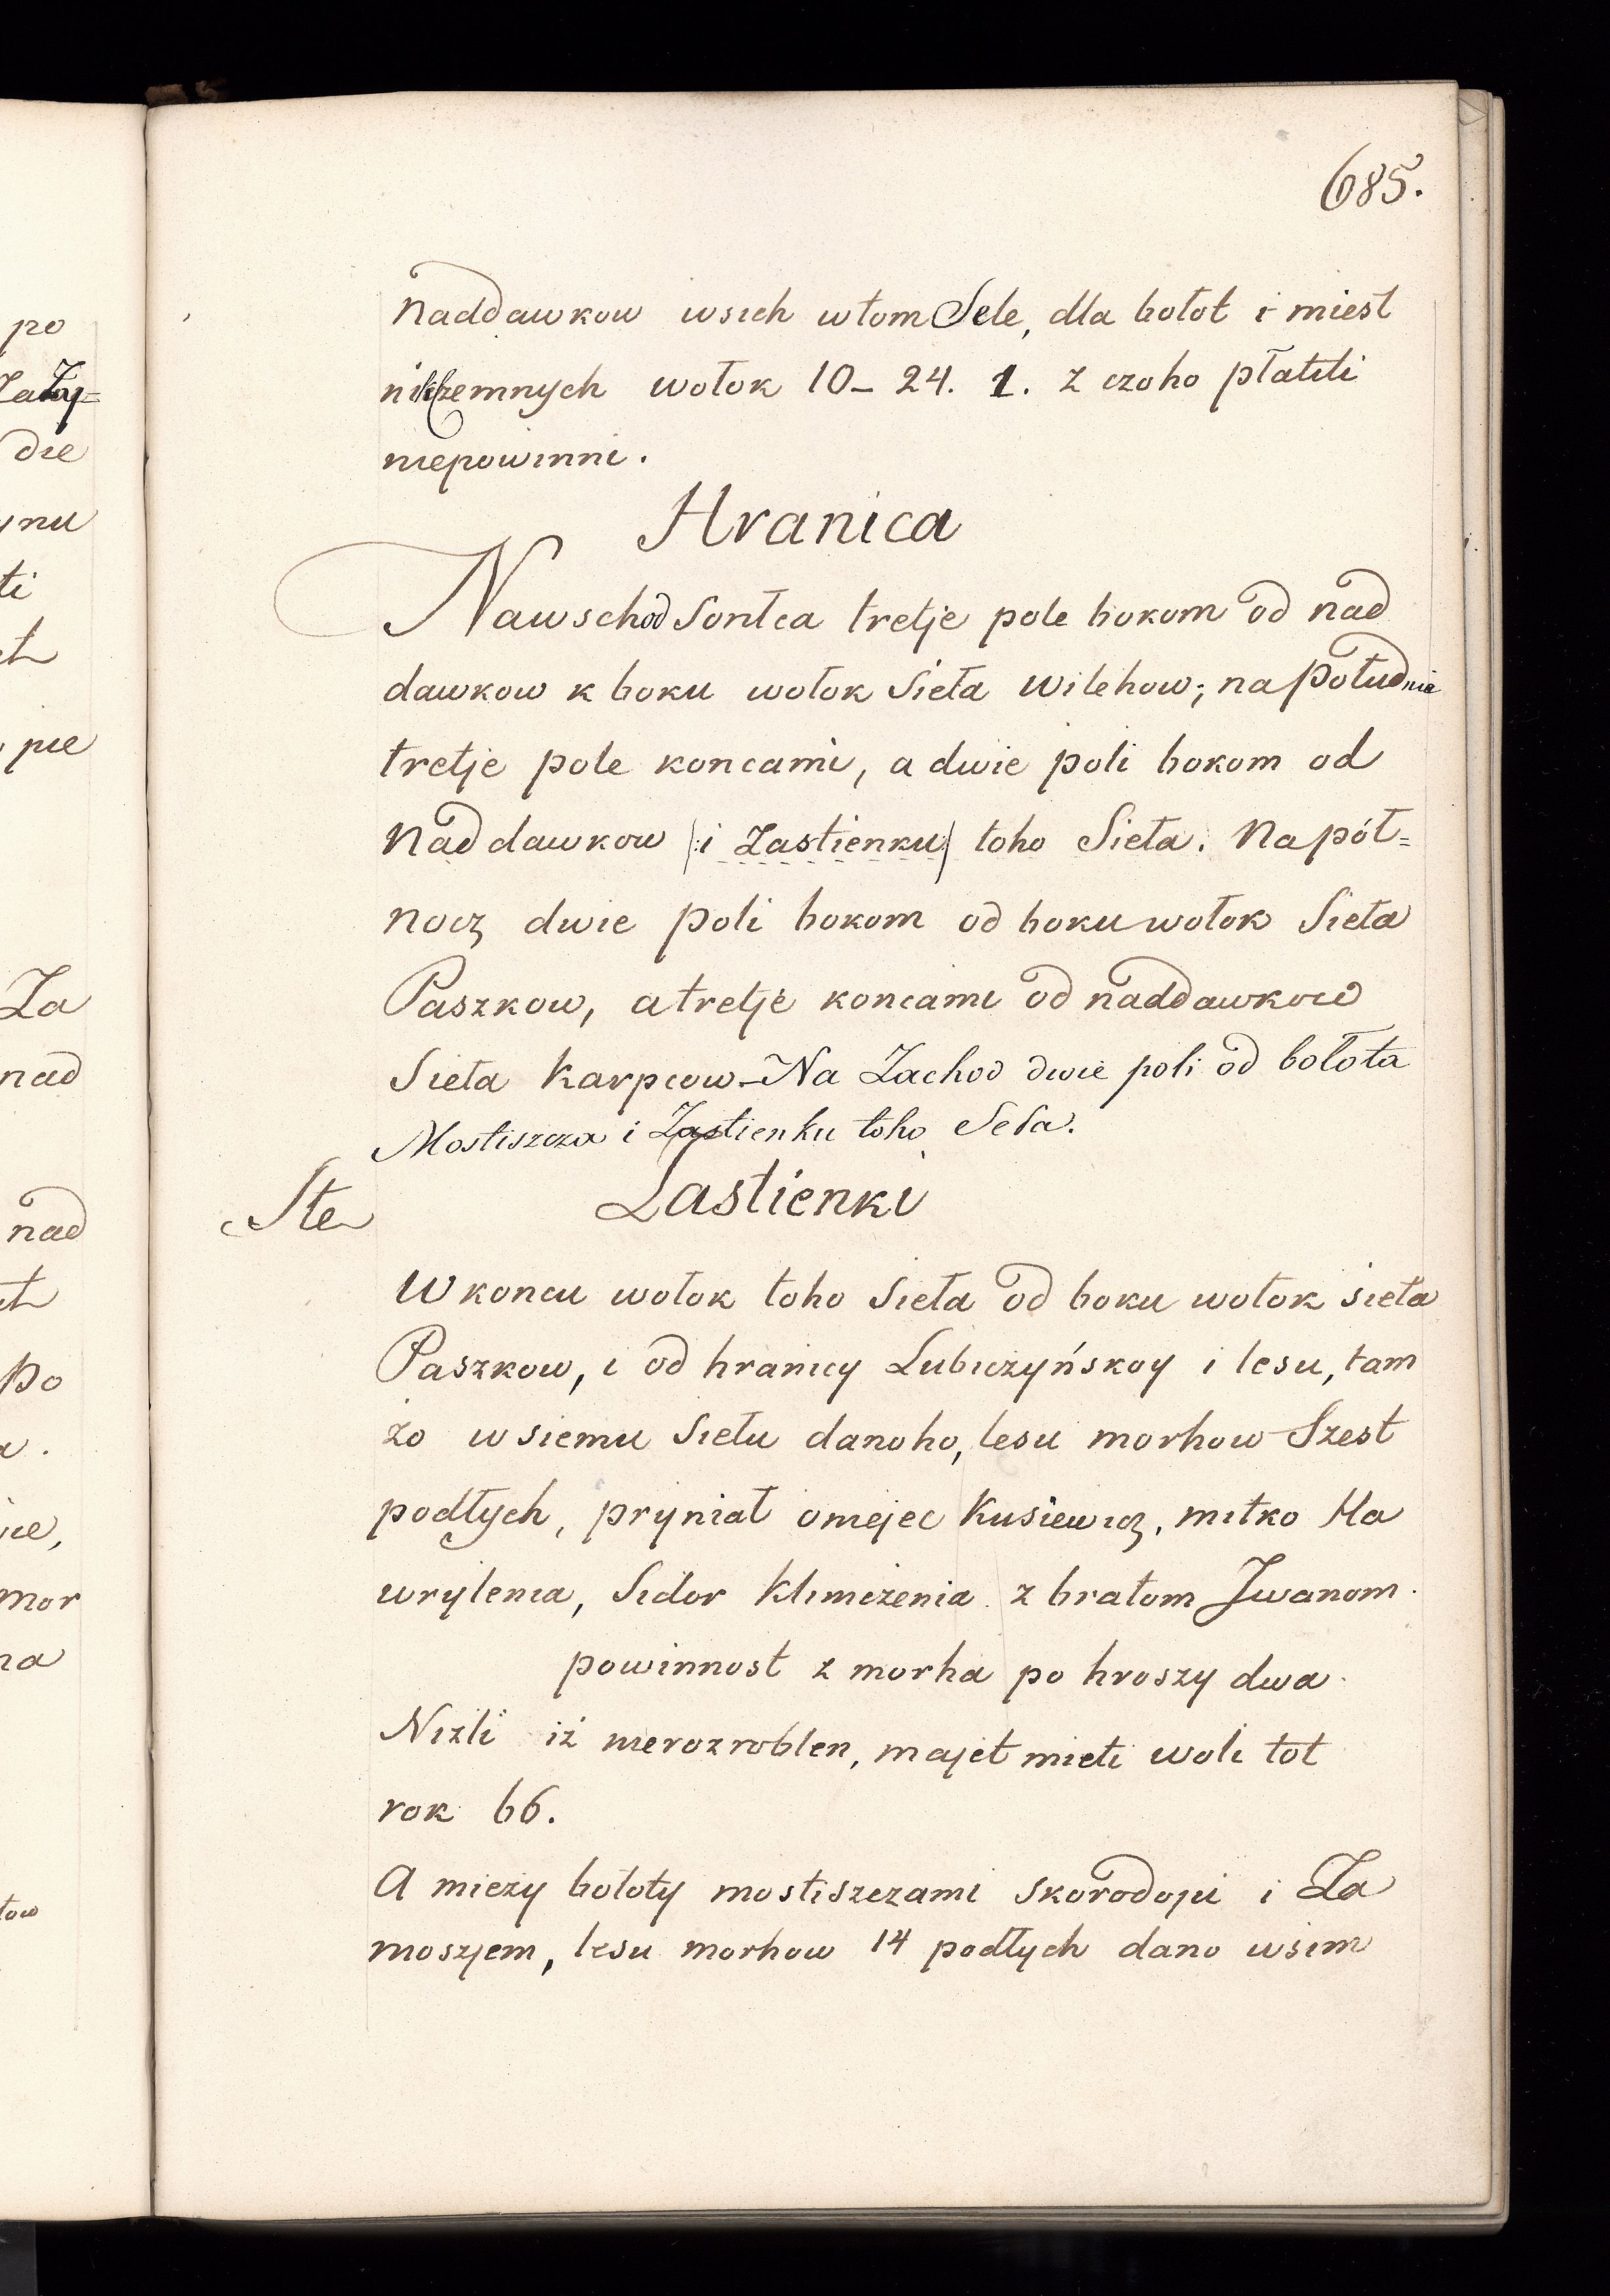 685.
Naddawkow wsich wtom Sele, dla bołot i miest
nikczemnych wołok 10– 24. 1. z czoho płatiti
niepowinni.
Hranica
Nawschod Sontca tretje pole bokom od nad
dawkow k boku wołok Sieła Wilehow; na Południe
tretje pole koncami, a dwie poli bokom od
Naddawkow (: i Zastienku) toho Sieła. Na pół=
nocz dwie poli bokom od boku wołok Sieła
Paszkow, a tretje koncami od naddawkow
Sieła Karpcow – Na Zachod dwie poli od bołota
Mostiszcza i Zastienku toho Seła.
Ste
Zastienki
W koncu wołok toho Sieła od boku wołok sieła
Paszkow, i od hranicy Lubiczyńskoy i lesu, tam
żo wsiemu Siełu danoho, lesu morhow Szest
podłych, pryniał omejec Kusiewicz, mitko Ha
wrylenia, Sidor Klimczenia z bratom Jwanom.
powinnost z morha po hroszy dwa.
Nizli iż nierozroblen, majet mieti woli tot
rok 66.
A miezy bołoty mostiszczami skorodopi i Za
moszjem, lesu morhow 14 podłych dano wsim
po
die
ynu
ti
pie
Za
nad
nad
Po
a.
mor
na